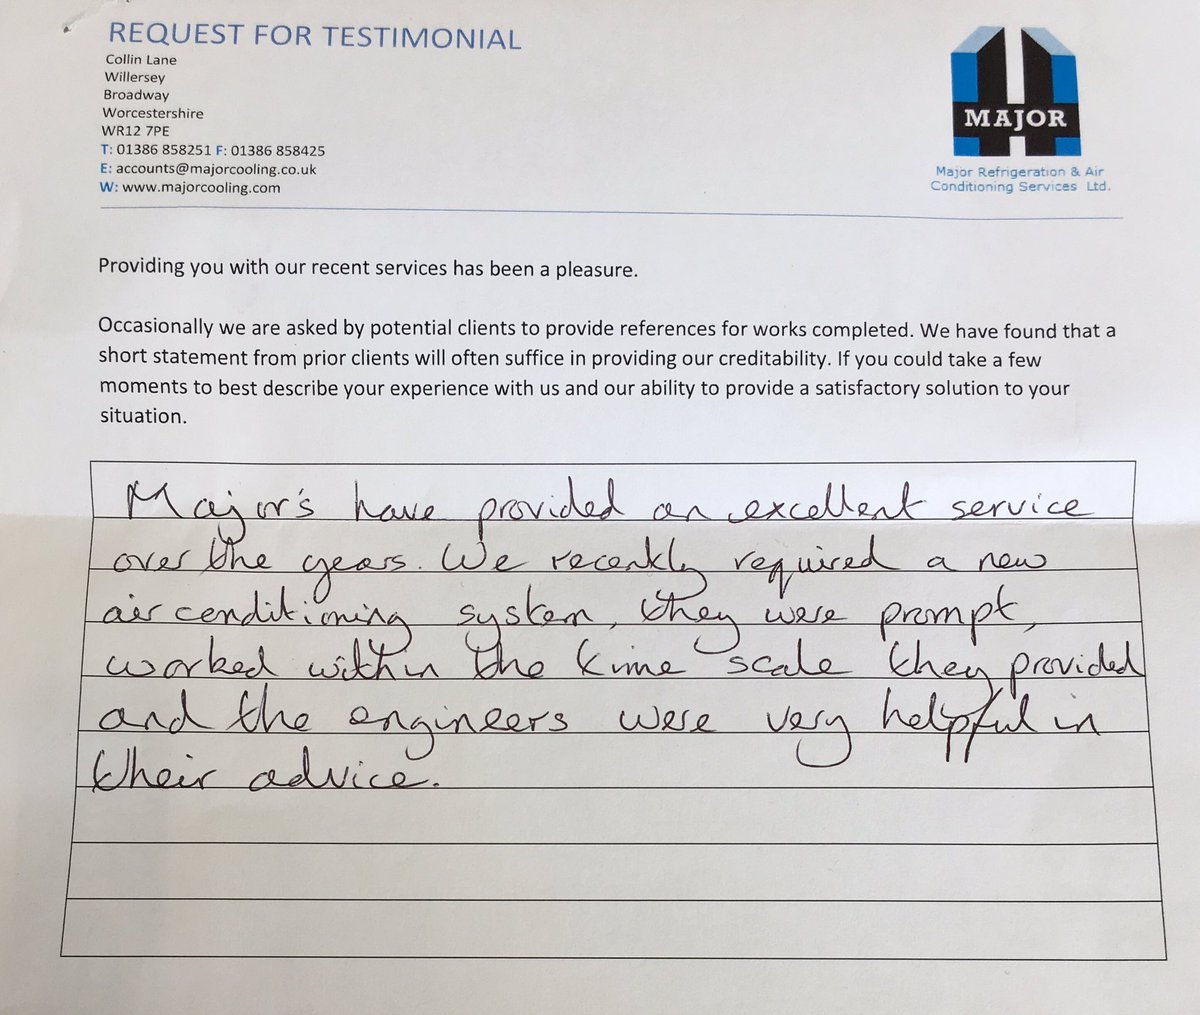 REQUEST FOR TESTIMONIAL
Collin Lane
Willersey
Broadway
Worcestershire
WR12 7PE
T: 01386 858251 F: 01386 858425
E: accounts@majorcooling.co.uk
W: www.majorcooling.com
MAJOR
Major Refrigeration & Air
Conditioning Services Ltd.
Providing you with our recent services has been a pleasure.
Occasionally we are asked by potential clients to provide references for works completed. We have found that a
short statement from prior clients will often suffice in providing our creditability. If you could take a few
moments to best describe your experience with us and our ability to provide a satisfactory solution to your
situation.
Major's have provided an excellent service
over the years. We recently required a new
air conditioning system, they were prompt,
worked within the time scale they provided
and the engineers were very helpful in
their advice.